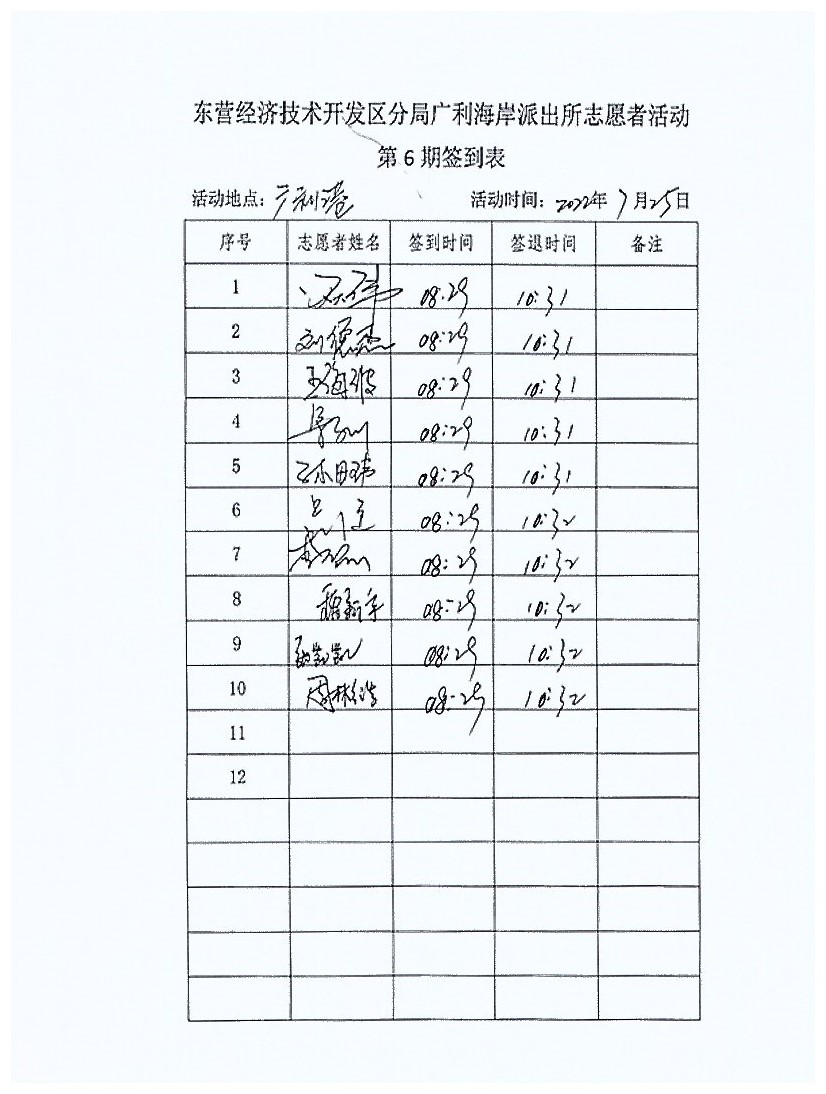 东营经济技术开发区分局广利海岸派出所志愿者活动
第6期签到表
活动地点：广利港 活动时间：2022年7月25日
序号 志愿者姓名 签到时间 签退时间 备注
1 08:29 10:31
2 刘德杰 08:29 10:31
3 王海波 08:29 10:31
4 08:29 10:31
5 08:29 10:31
6 08:29 10:32
7 08:29 10:32
8 08:29 10:32
9 08:29 10:32
10 08:29 10:32
11
12